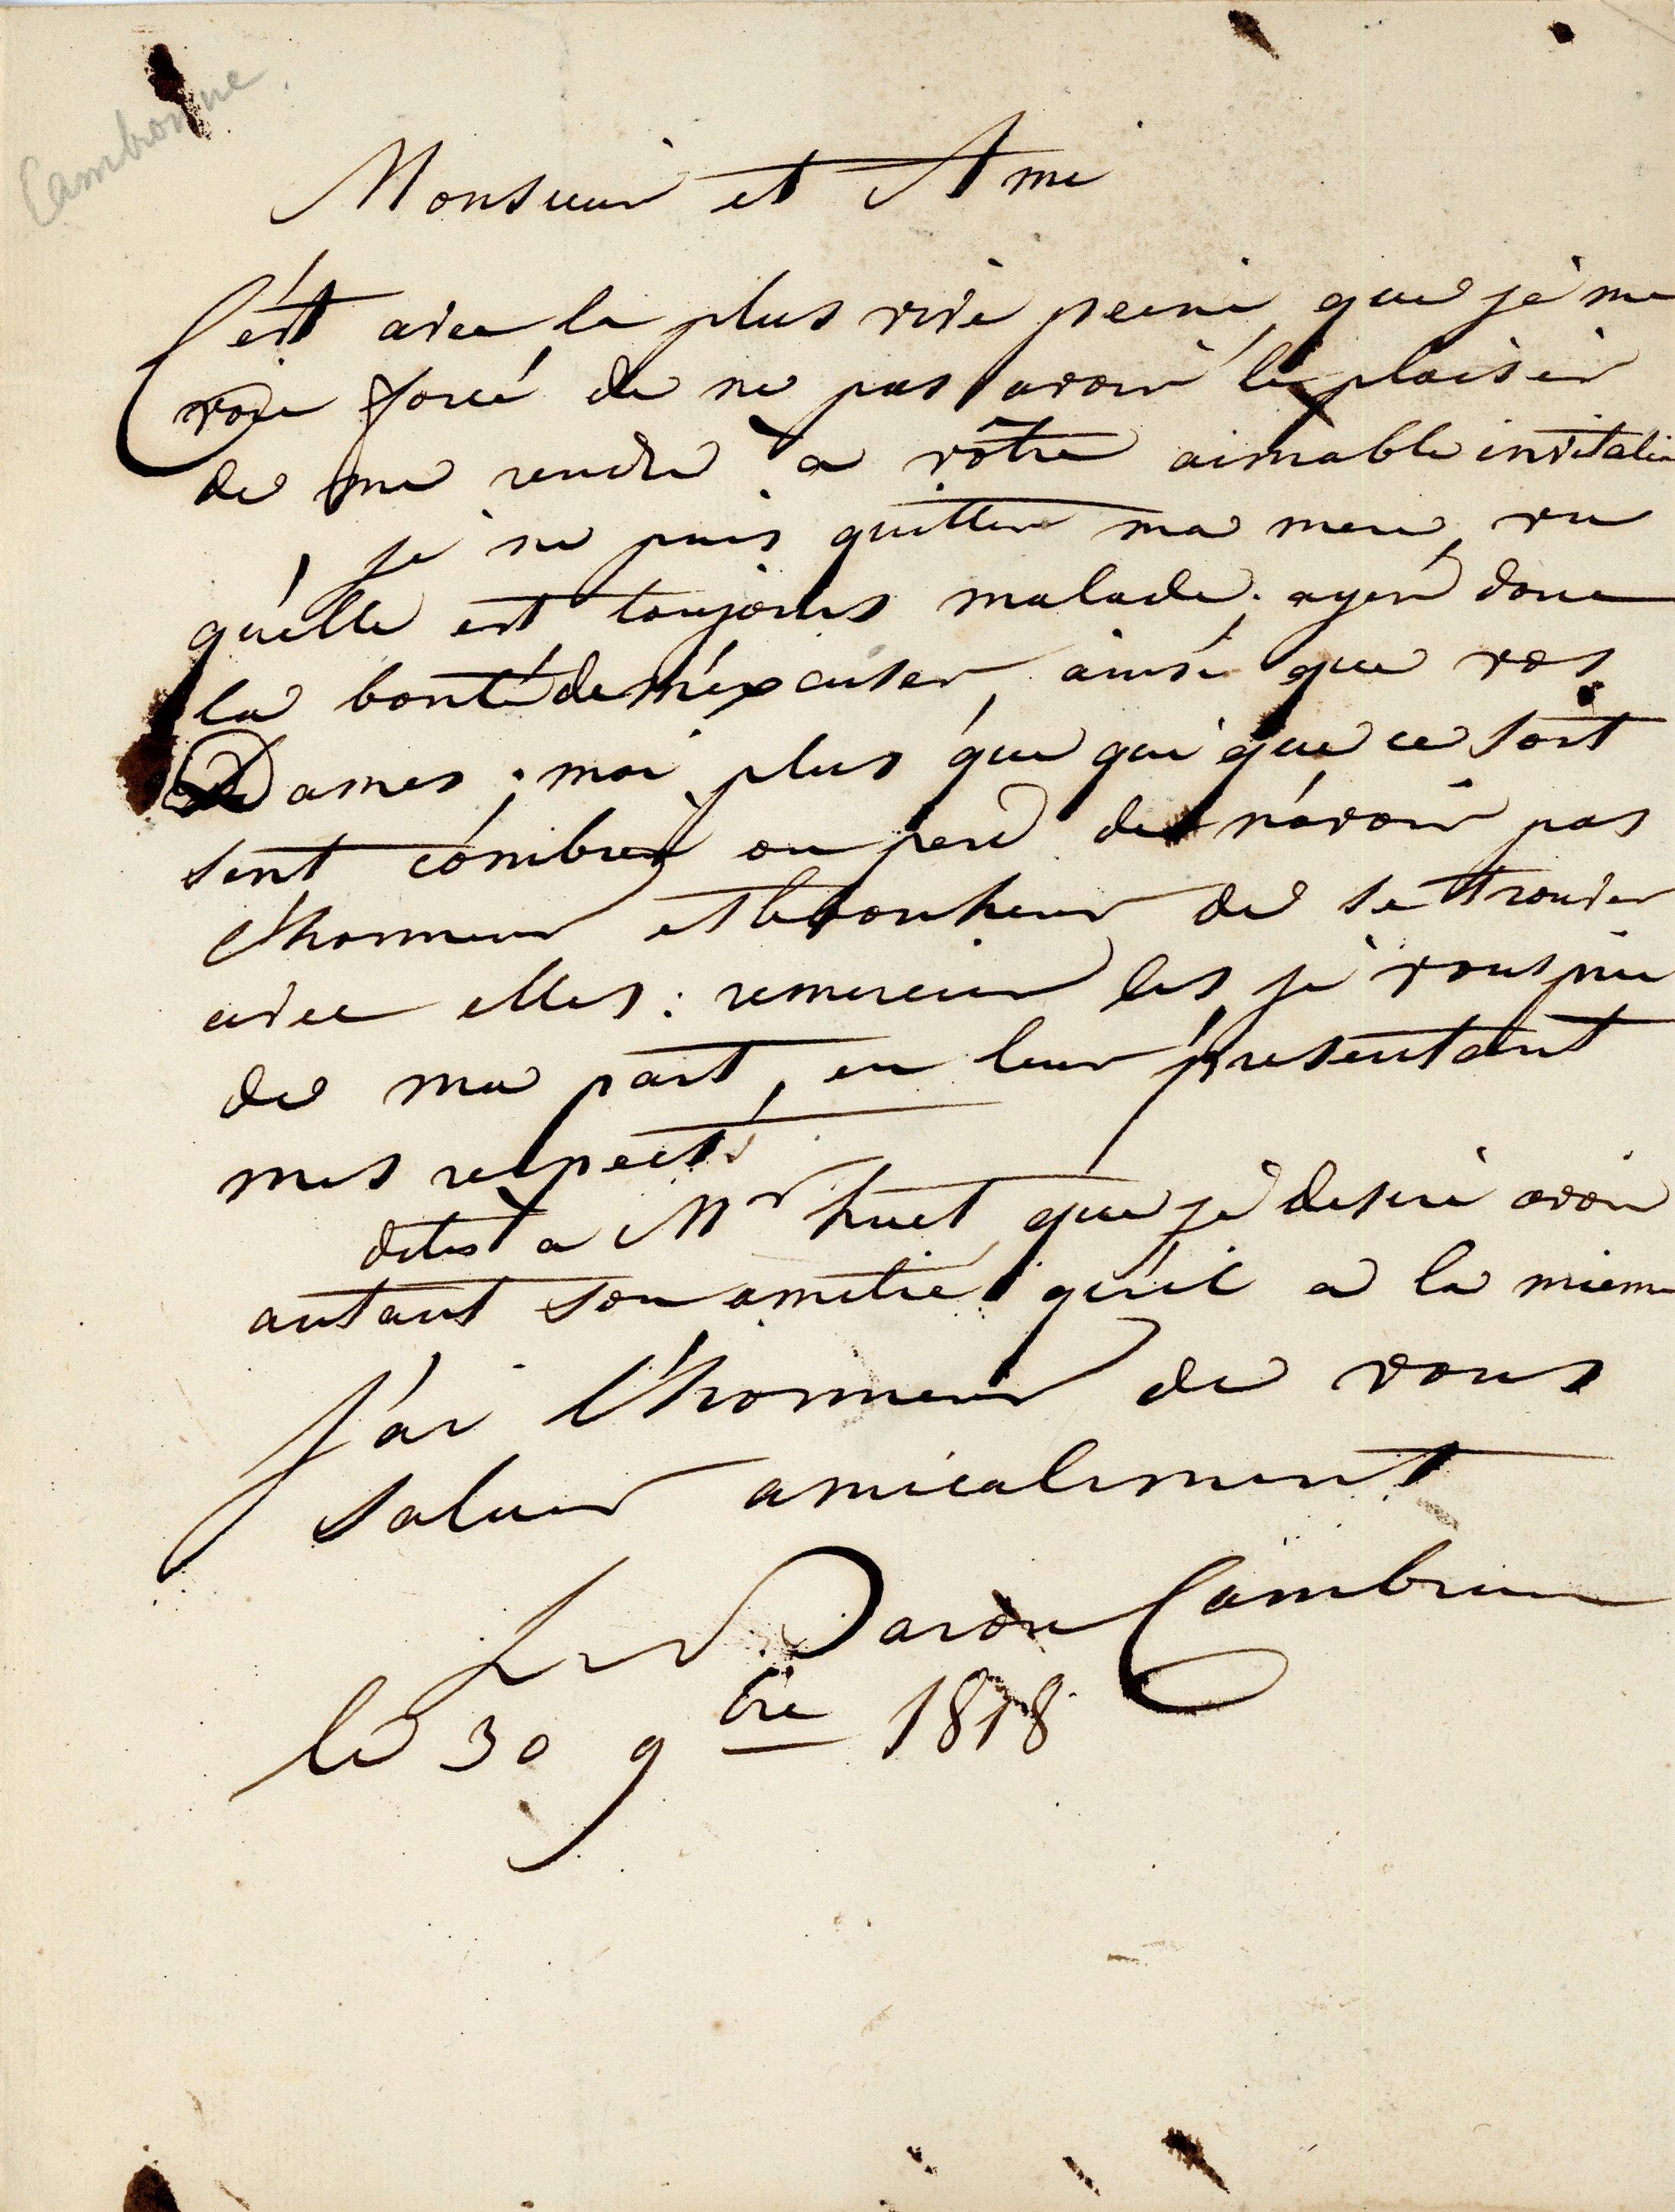 Cambronne.
Monsieur et Ami
C'est avec la plus vive peine, que je me
voie forcé de ne pas avoir le plaisir
de me rendre à vôtre aimable invitation
je ne puis quitter ma mere, vu
qu'elle est toujours malade; ayer donc
la bonté de m'éxcuser, ainsi que vos
Dames; moi plus que qui que ce soit
sent combien on perd de n'avoir pas
l'honneur et le bonheur de se trouver
avec elles: remercier les, je vous prie
de ma part, en leur presentant
mes respects
dites a Mr huet, que je desire avoir
autant son amitié qu'il a la mienne
J'ai l'honneur de vous
saluer amicalement
Le Baron Cambronne
le 30 9bre 1818